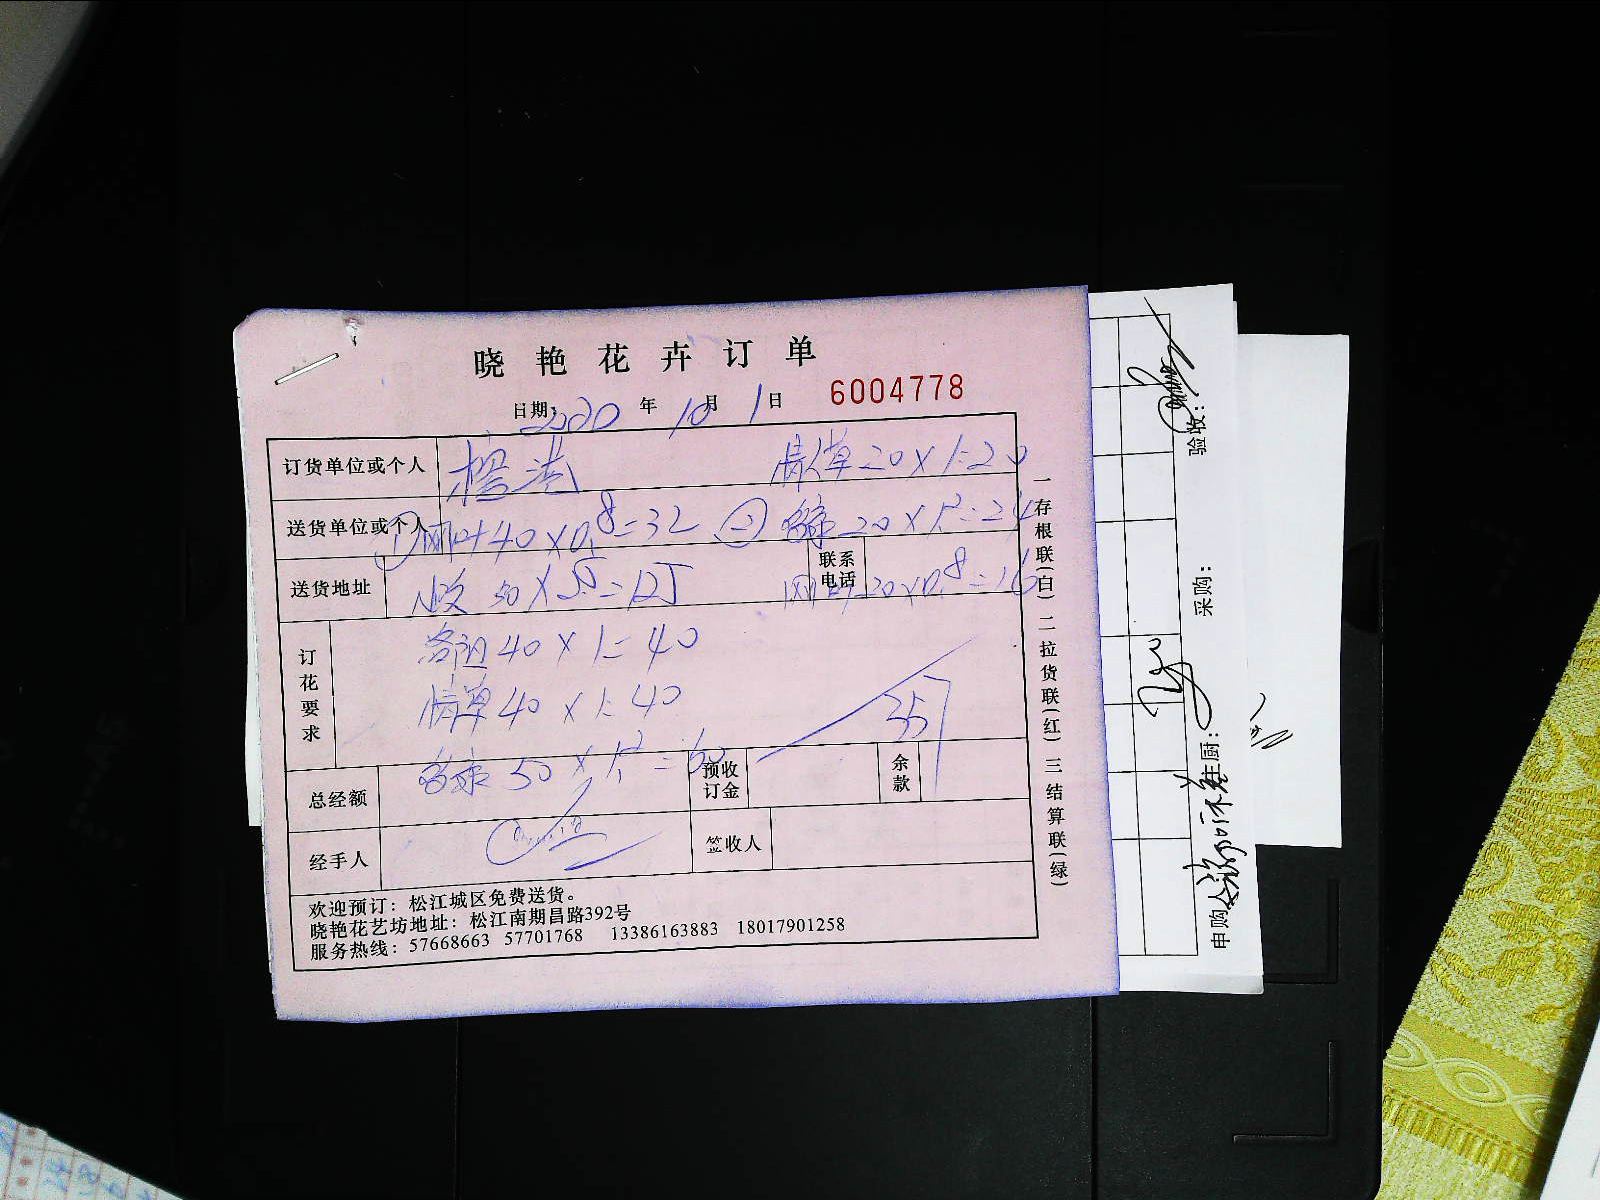 晓艳花卉订单
日期: 2020 年 10 月 1 日 6004778
订货单位或个人 情人草 20 × 1 = 20
送货单位或个人 ① 40 × 0.8 = 32 ② 20 × 1.2 = 24
送货地址 50 × 2.5 = 125 联系电话 20 × 0.8 = 16
订花要求
40 × 1 = 40
情草 40 × 1 = 40
50 × 1.2 = 60
357
总经额 预收订金 余款
经手人 签收人
欢迎预订：松江城区免费送货。
晓艳花艺坊地址：松江南期昌路392号
服务热线：57668663 57701768 13386163883 18017901258
一存根联(白) 二拉货联(红) 三结算联(绿)
验收：
采购：
申购人